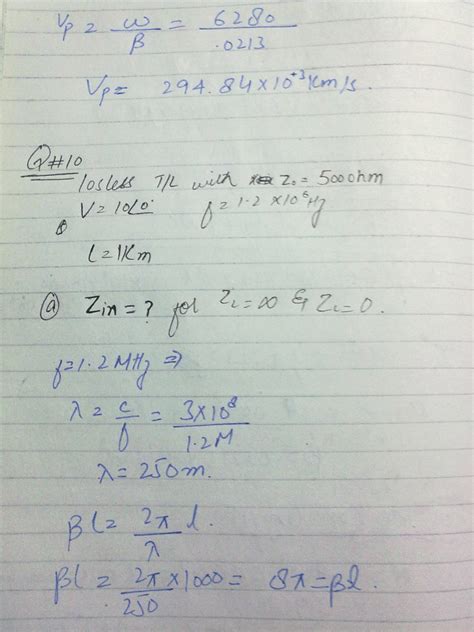 Vp = ω/β = 6280/.0213
Vp = 294.84×10⁺³ Km/s.
Q#10
losless T/L with Z₀ = 500 ohm
V = 10∠0° f = 1.2 ×10⁶ Hz
l = 1Km
ⓐ Zin = ? for ZL = ∞ & ZL = 0.
f = 1.2 MHz ⇒
λ = c/f = 3×10⁸/1.2M
λ = 250m.
βl = 2π/λ l.
βl = 2π/250 ×1000 = 8π = βl.